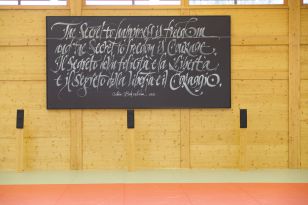 The Secret to happiness is freedom
and the Secret to freedom is Courage.
Il Segreto della felicità è la Libertà
e il Segreto della libertà è il Coraggio.